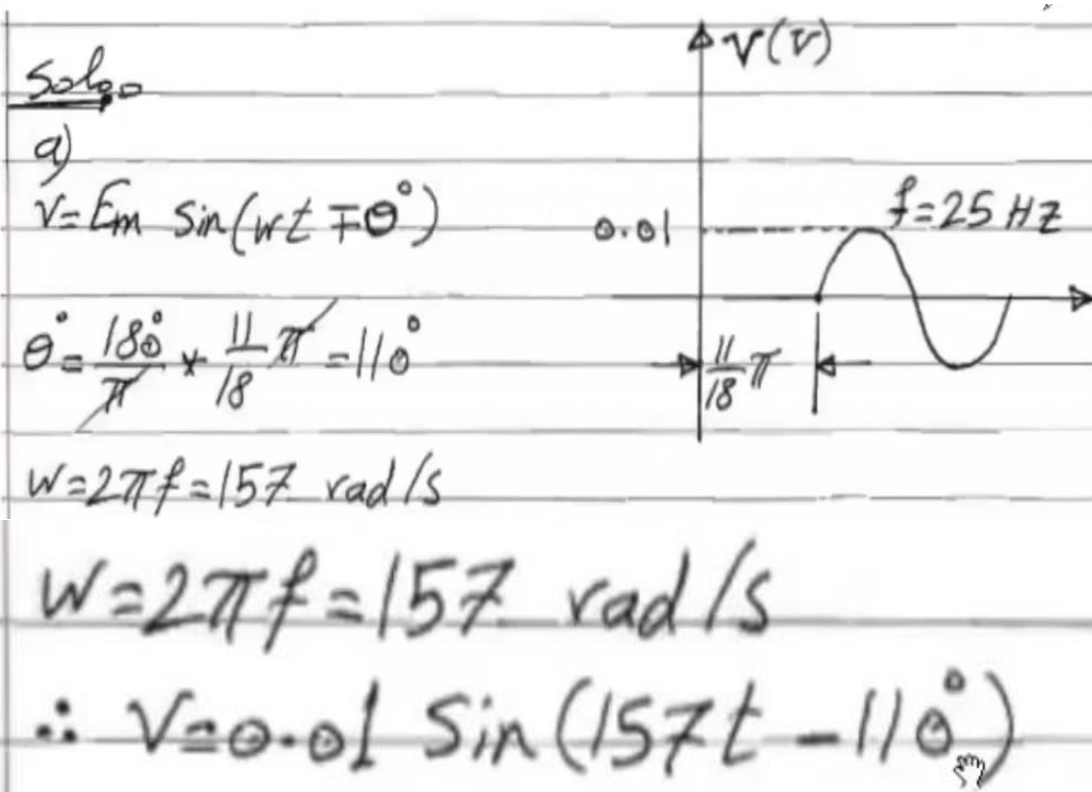 Soln
a)
V = Em sin(wt ∓ θ°)
θ° = 180°/π * 11/18 π = 110°
w = 2πf = 157 rad/s
V(v)
f = 25 Hz
0.01
11/18 π
w = 2πf = 157 rad/s
∴ V = 0.01 Sin(157t - 110°)